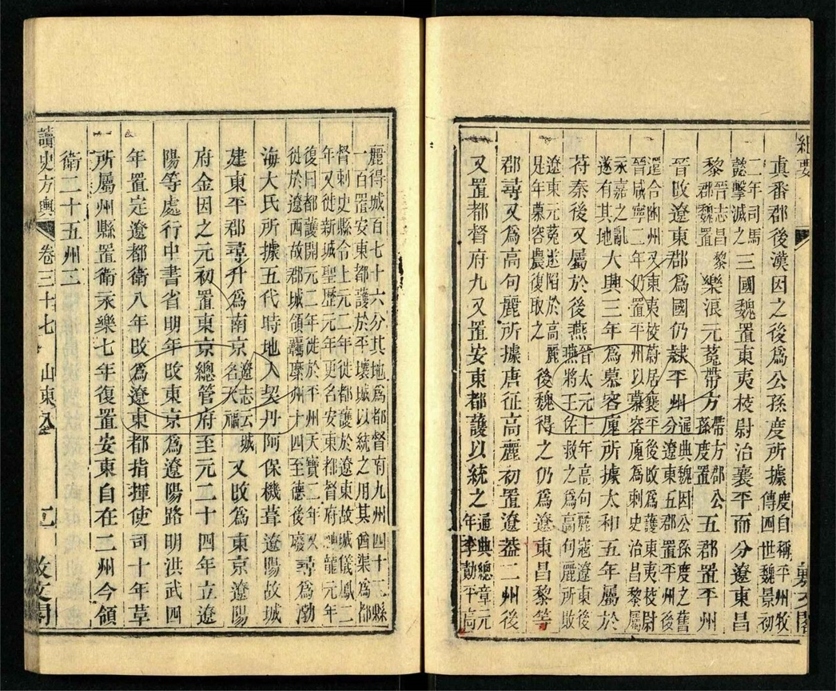 紀要
真番郡後漢因之後爲公孫度所據度自稱平州牧傳四世魏景初
二年司馬懿擊滅之三國魏置東夷校尉治襄平而分遼東昌
黎晉志昌黎郡魏置樂浪元菟帶方帶方郡公孫度置五郡置平州
晉改遼東郡爲國仍隸平州通典魏因公孫度之舊分遼東五郡置平州
還合幽州又東夷校尉居襄平後改爲護東夷校尉
晉咸寧二年仍置平州以慕容廆爲刺史治昌黎屬
永嘉之亂遂有其地大興三年爲慕容廆所據太和五年屬於
苻秦後又屬於後燕晉太元十年高句麗寇遼東後燕將王佐救之爲高句麗所敗
遼東元菟遂陷於高麗是年慕容農復取之後魏得之仍爲遼東昌黎等
郡尋又爲高句麗所據唐征高麗初置遼蓋二州後
又置都督府九又置安東都護以統之通典總章元年李勣平高
麗得城百七十六分其地爲都督府九州四十二縣
一百置安東都護於平壤城以統之用其酋渠爲都
督刺史縣令上元二年徙都護於遼東故城儀鳳二
年又徙新城聖歷元年更名安東都督府神龍元年
後囘都護開元二年徙於平州天寶二年
徙於遼西故郡城領羈縻州十四至德後廢又尋爲渤
海大氏所據五代時地入契丹阿保機葺遼陽故城
建東平郡尋升爲南京遼志云城名天福又改爲東京遼陽
府金因之元初置東京總管府至元二十四年立遼
陽等處行中書省明年改東京爲遼陽路明洪武四
年置定遼都衛八年改爲遼東都指揮使司十年革
所屬州縣置衛永樂七年復置安東自在二州今領
衛二十五州二
讀史方輿
卷三十七
山東八
敷文閣